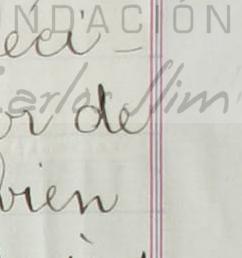 NDACIÓN
éci-
Carlos Slim
or de
bien